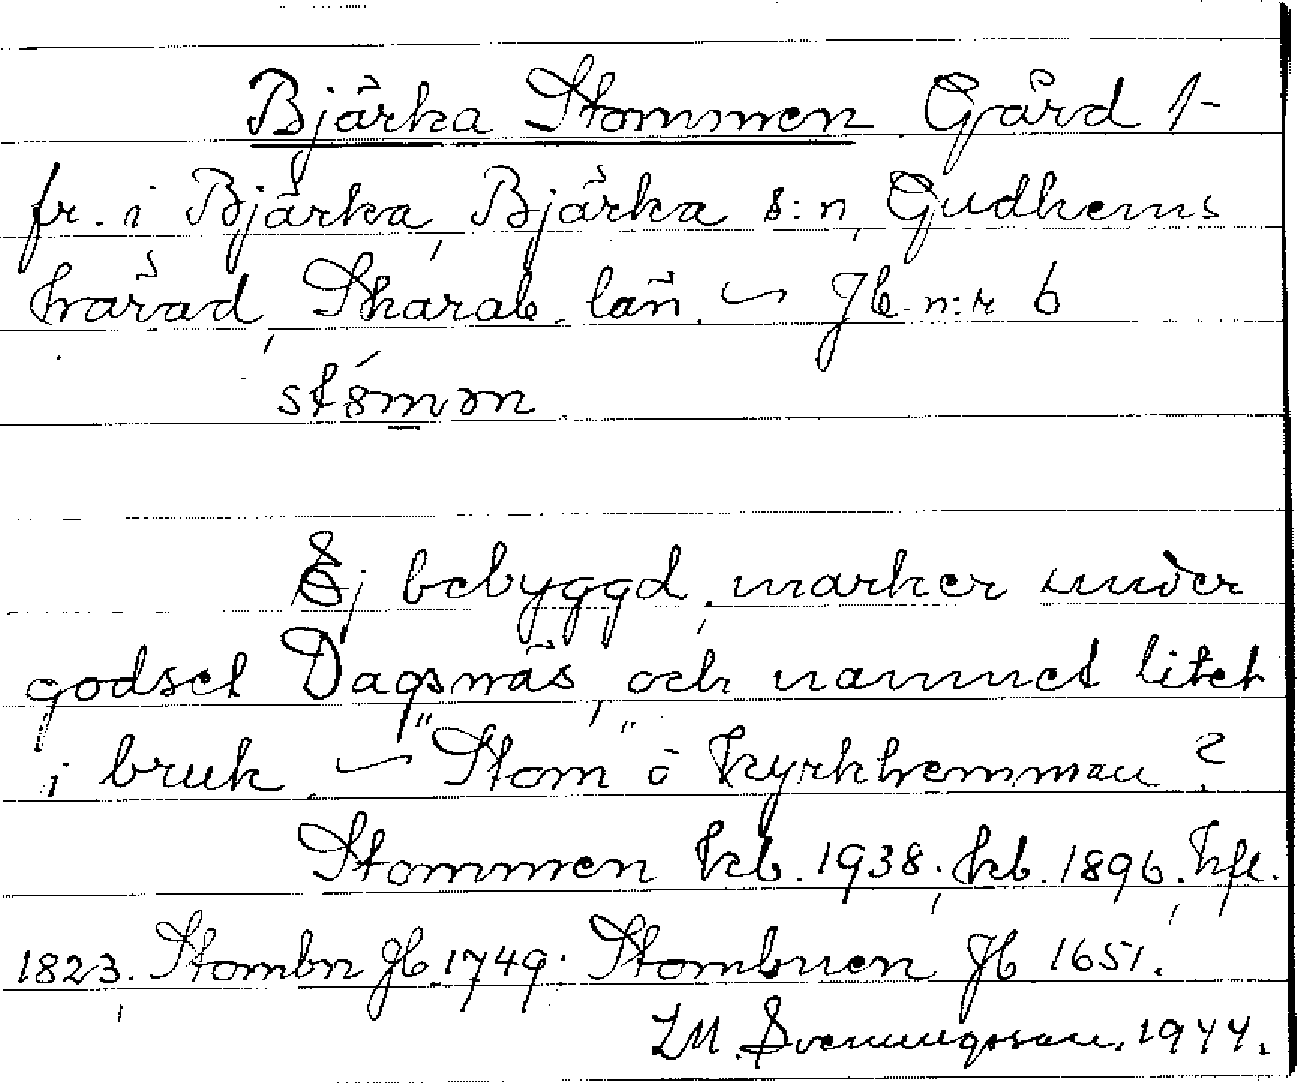 Bjärka Stommen. Gård 1-
fr. i Bjärka, Bjärka s:n, Gudhems
härad, Skarab. län. ~ Jb. n:r 6
stǿmɷn.
Ej bebyggd, marker under
godset Dagsnäs, och namnet litet
i bruk. ~ "Stom" å kyrkhemman?
Stommen kb. 1938; kb. 1896, hfl.
1823, Stombn Jb. 1749. Stombnen Jb 1651.
LM. Svenungsson. 1944.